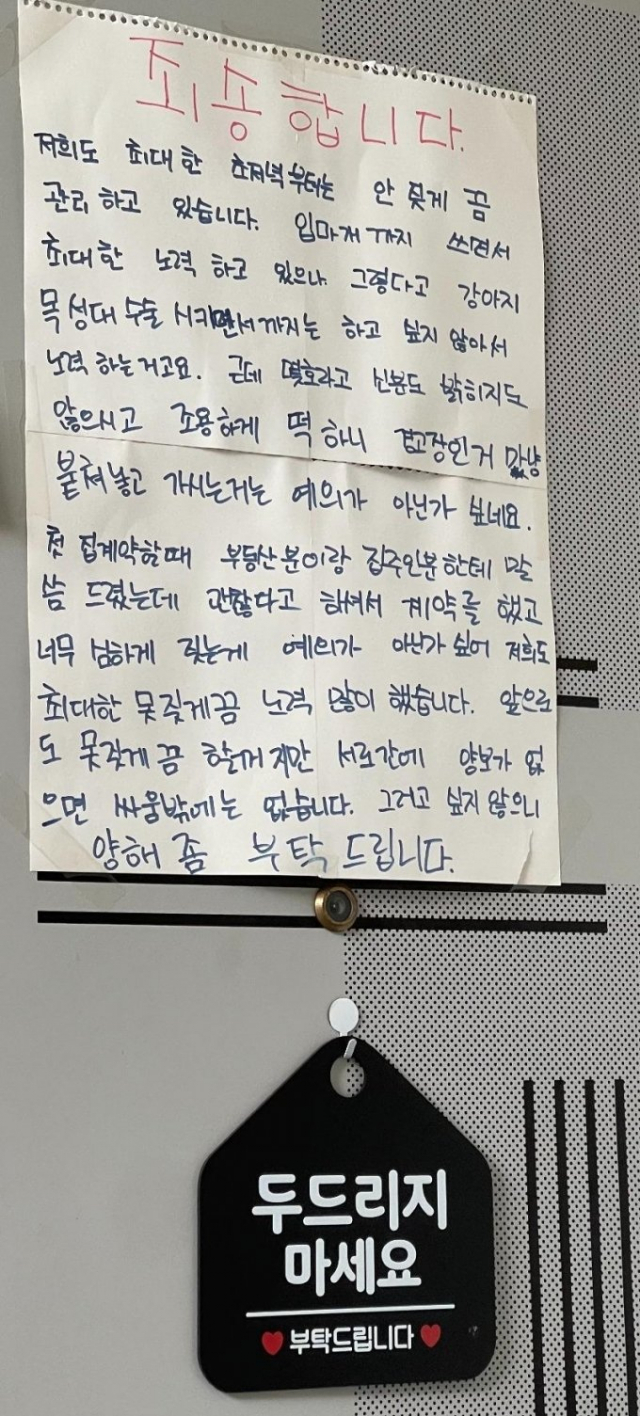 죄송합니다.
저희도 최대한 초저녁부터는 안 짖게 끔
관리 하고 있습니다. 입마개 까지 쓰면서
최대한 노력 하고 있으나 그렇다고 강아지
목 성대 수술 시키면서까지는 하고 싶지 않아서
노력 하는거고요. 근데 몇호라고 신분도 밝히지도
않으시고 조용하게 떡 하니 경고장인거 마냥
붙쳐놓고 가시는거는 예의가 아닌가 싶네요.
첫 집계약할때 부동산분이랑 집주인분한테 말
씀 드렸는데 괜찮다고 하셔서 계약를 했고
너무 심하게 짖는게 예의가 아닌가 싶어 저희도
최대한 못짖게끔 노력 많이 했습니다. 앞으로
도 못짖게 끔 할꺼지만 서로간에 양보가 없
으면 싸움밖에는 없습니다. 그러고 싶지 않으니
양해 좀 부탁 드립니다.
두드리지
마세요
부탁드립니다